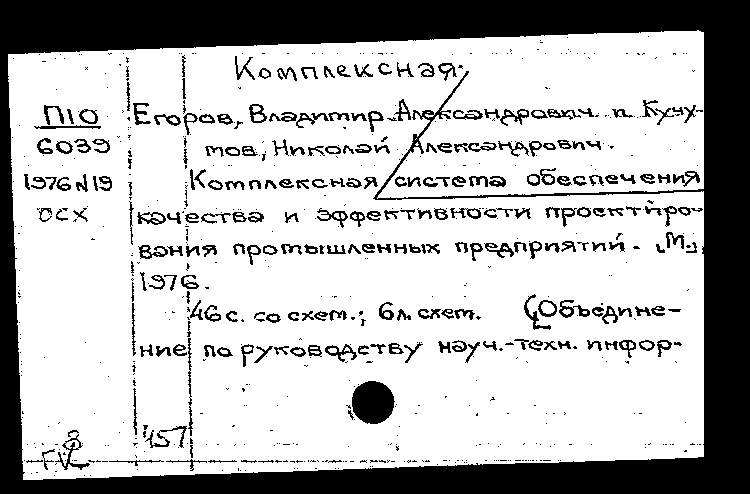 Комплексная.
П10 Егоров, Владимир Александрович и Кучу-
6039 тов, Николай Александрович.
1976 N19 Комплексная система обеспечения
ОСХ качества и эффективности проектиро-
вания промышленных предприятий. М.,
1976.
46 с. со схем.; 6 л. схем. (Объедине-
ние по руководству науч.-техн. инфор-
457